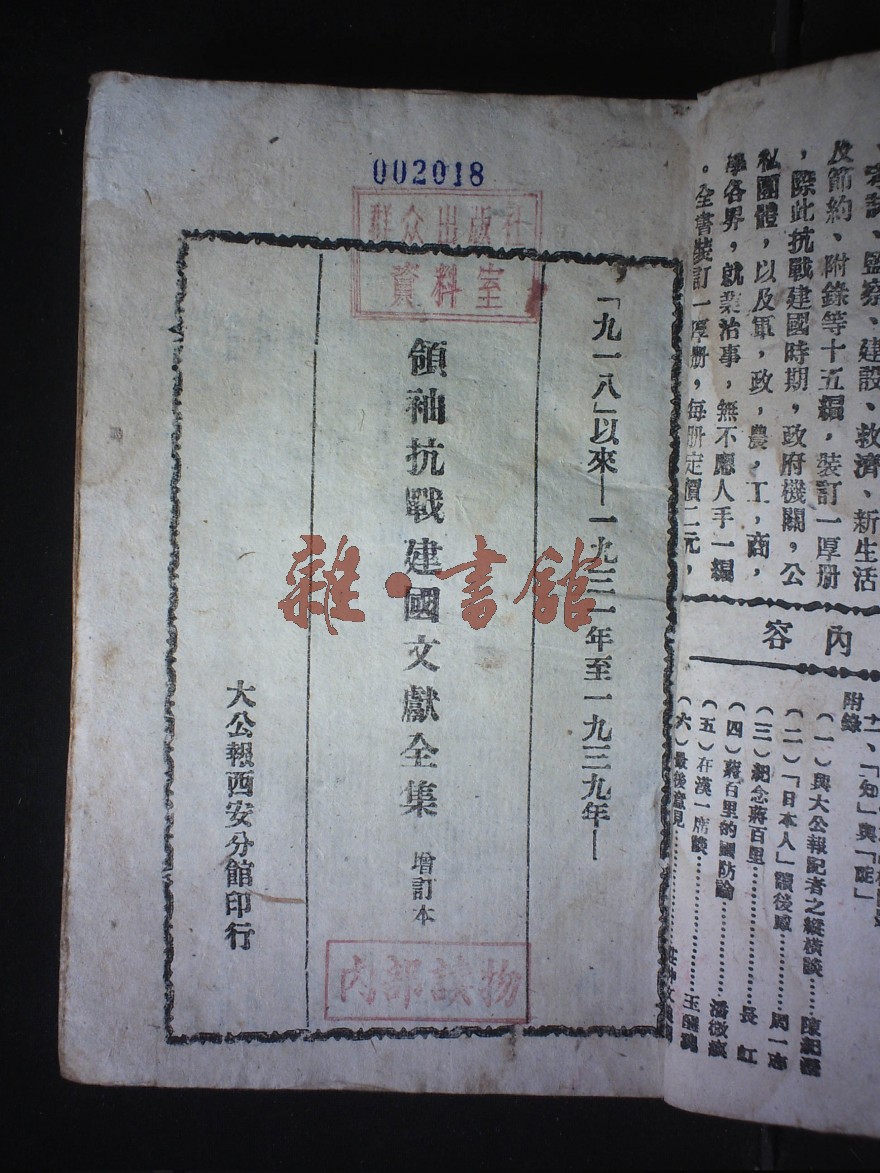 002018
群众出版社
資料室
「九一八」以來—一九三一年至一九三九年—
領袖抗戰建國文獻全集 增訂本
大公報西安分館印行
內部讀物
雜·書館
、監察、建設、救濟、新生活
及節約、附錄等十五編，裝訂一厚册
，際此抗戰建國時期，政府機關，公
私團體，以及軍，政，農，工，商，
學各界，就業治事，無不應人手一編
。全書裝訂一厚册，每册定價二元，
內容
「知」與「能」
附錄
（一）與大公報記者之縱橫談……陳紀瀅
（二）「日本人」讀後感……周一志
（三）紀念蔣百里……長 紅
（四）蔣百里的國防論……潘
（五）在漢一席談……王
（六）最後意見……